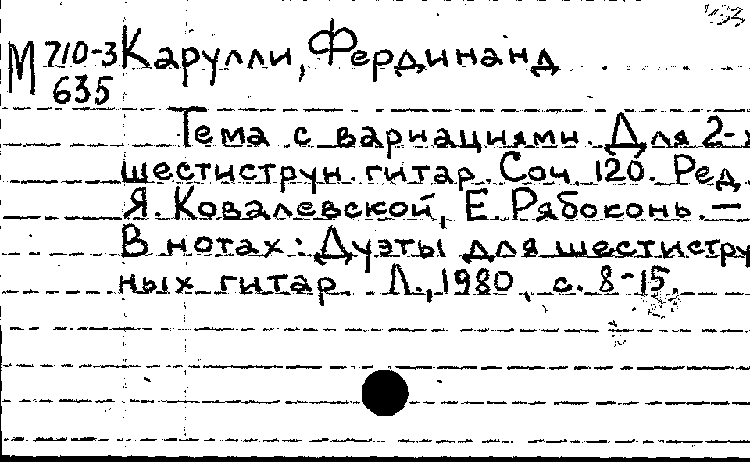 М 710-3 Карулли, Фердинанд
635
Тема с вариациями. Для 2-х
шестиструн. гитар. Соч. 120. Ред.
Я. Ковалевской, Е. Рябоконь. —
В нотах: Дуэты для шестистру
ных гитар. Л., 1980, с. 8-15.